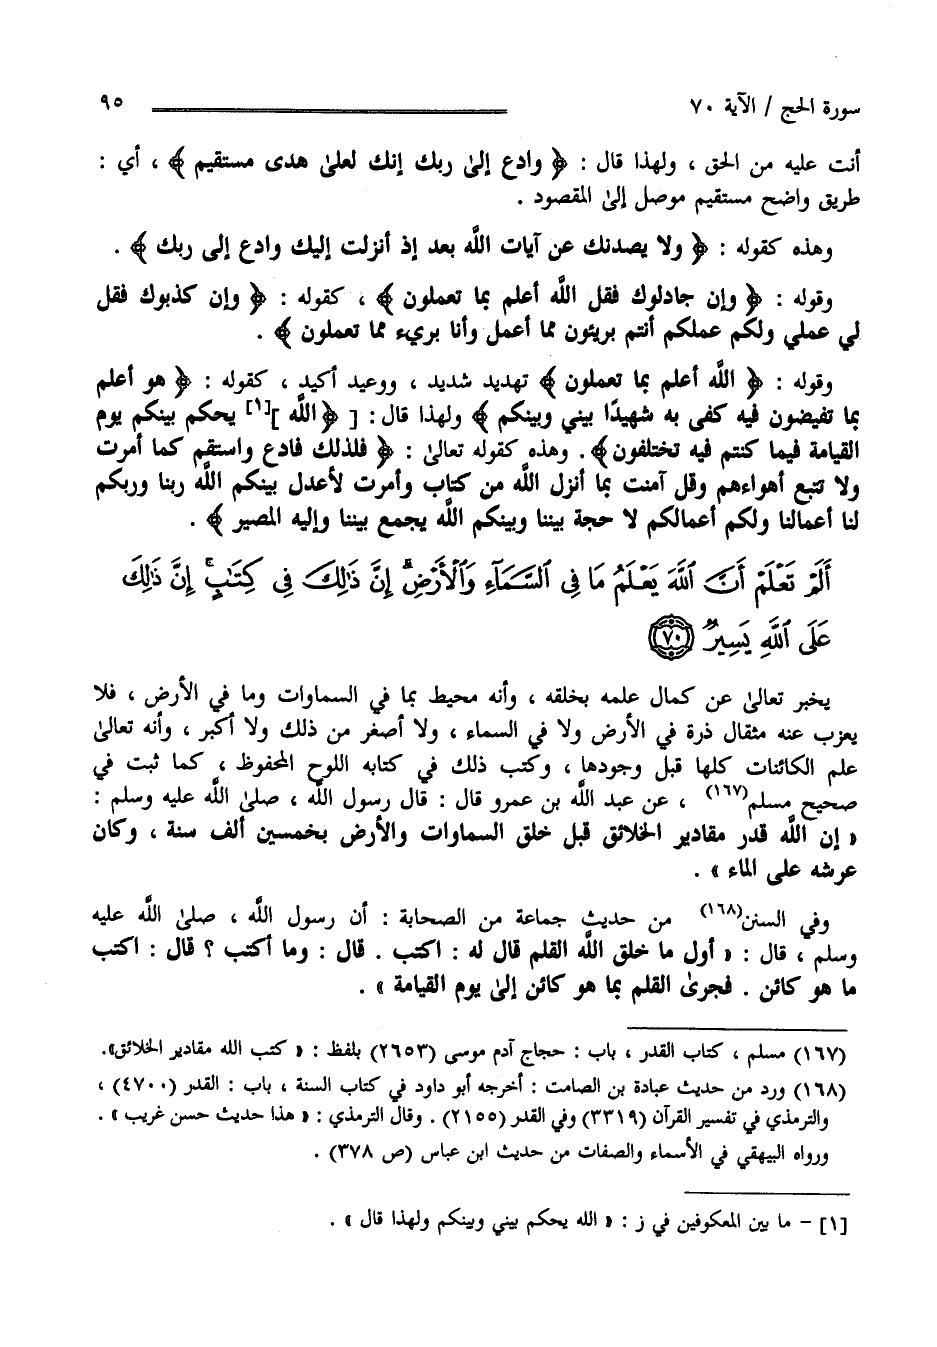 سورة الحج / الآية ٧٠ ٩٥
أنت عليه من الحق ، ولهذا قال : ﴿ وادع إلىٰ ربك إنك لعلىٰ هدى مستقيم ﴾ ، أي :
طريق واضح مستقيم موصل إلىٰ المقصود .
وهذه كقوله : ﴿ ولا يصدنك عن آيات اللَّه بعد إذ أنزلت إليك وادع إلى ربك ﴾ .
وقوله : ﴿ وإن جادلوك فقل اللَّه أعلم بما تعملون ﴾ ، كقوله : ﴿ وإن كذبوك فقل
لي عملي ولكم عملكم أنتم بريئون مما أعمل وأنا بريء مما تعملون ﴾ .
وقوله : ﴿ اللَّه أعلم بما تعملون ﴾ تهديد شديد ، ووعيد أكيد ، كقوله : ﴿ هو أعلم
بما تفيضون فيه كفى به شهيدًا بيني وبينكم ﴾ ولهذا قال : [ ﴿ اللَّه ][١] يحكم بينكم يوم
القيامة فيما كنتم فيه تختلفون ﴾ . وهذه كقوله تعالىٰ : ﴿ فلذلك فادع واستقم كما أمرت
ولا تتبع أهواءهم وقل آمنت بما أنزل اللَّه من كتاب وأمرت لأعدل بينكم اللَّه ربنا وربكم
لنا أعمالنا ولكم أعمالكم لا حجة بيننا وبينكم اللَّه يجمع بيننا وإليه المصير ﴾ .
أَلَمْ تَعْلَمْ أَنَّ ٱللَّهَ يَعْلَمُ مَا فِى ٱلسَّمَآءِ وَٱلْأَرْضِ ۗ إِنَّ ذَٰلِكَ فِى كِتَـٰبٍ ۚ إِنَّ ذَٰلِكَ
عَلَى ٱللَّهِ يَسِيرٌ ﴿٧٠﴾
يخبر تعالىٰ عن كمال علمه بخلقه ، وأنه محيط بما في السماوات وما في الأرض ، فلا
يعزب عنه مثقال ذرة في الأرض ولا في السماء ، ولا أصغر من ذلك ولا أكبر ، وأنه تعالىٰ
علم الكائنات كلها قبل وجودها ، وكتب ذلك في كتابه اللوح المحفوظ ، كما ثبت في
صحيح مسلم(١٦٧) ، عن عبد اللَّه بن عمرو قال : قال رسول اللَّه ، صلىٰ اللَّه عليه وسلم :
« إن اللَّه قدر مقادير الخلائق قبل خلق السماوات والأرض بخمسين ألف سنة ، وكان
عرشه على الماء » .
وفي السنن(١٦٨) من حديث جماعة من الصحابة : أن رسول اللَّه ، صلىٰ اللَّه عليه
وسلم ، قال : « أول ما خلق اللَّه القلم قال له : اكتب . قال : وما أكتب ؟ قال : اكتب
ما هو كائن . فجرىٰ القلم بما هو كائن إلىٰ يوم القيامة » .
(١٦٧) مسلم ، كتاب القدر ، باب : حجاج آدم موسى (٢٦٥٣) بلفظ : « كتب الله مقادير الخلائق».
(١٦٨) ورد من حديث عبادة بن الصامت : أخرجه أبو داود في كتاب السنة ، باب : القدر (٤٧٠٠) ،
والترمذي في تفسير القرآن (٣٣١٩) وفي القدر (٢١٥٥) . وقال الترمذي : « هذا حديث حسن غريب » .
ورواه البيهقي في الأسماء والصفات من حديث ابن عباس (ص ٣٧٨) .
[١] – ما بين المعكوفين في ز : « الله يحكم بيني وبينكم ولهذا قال » .